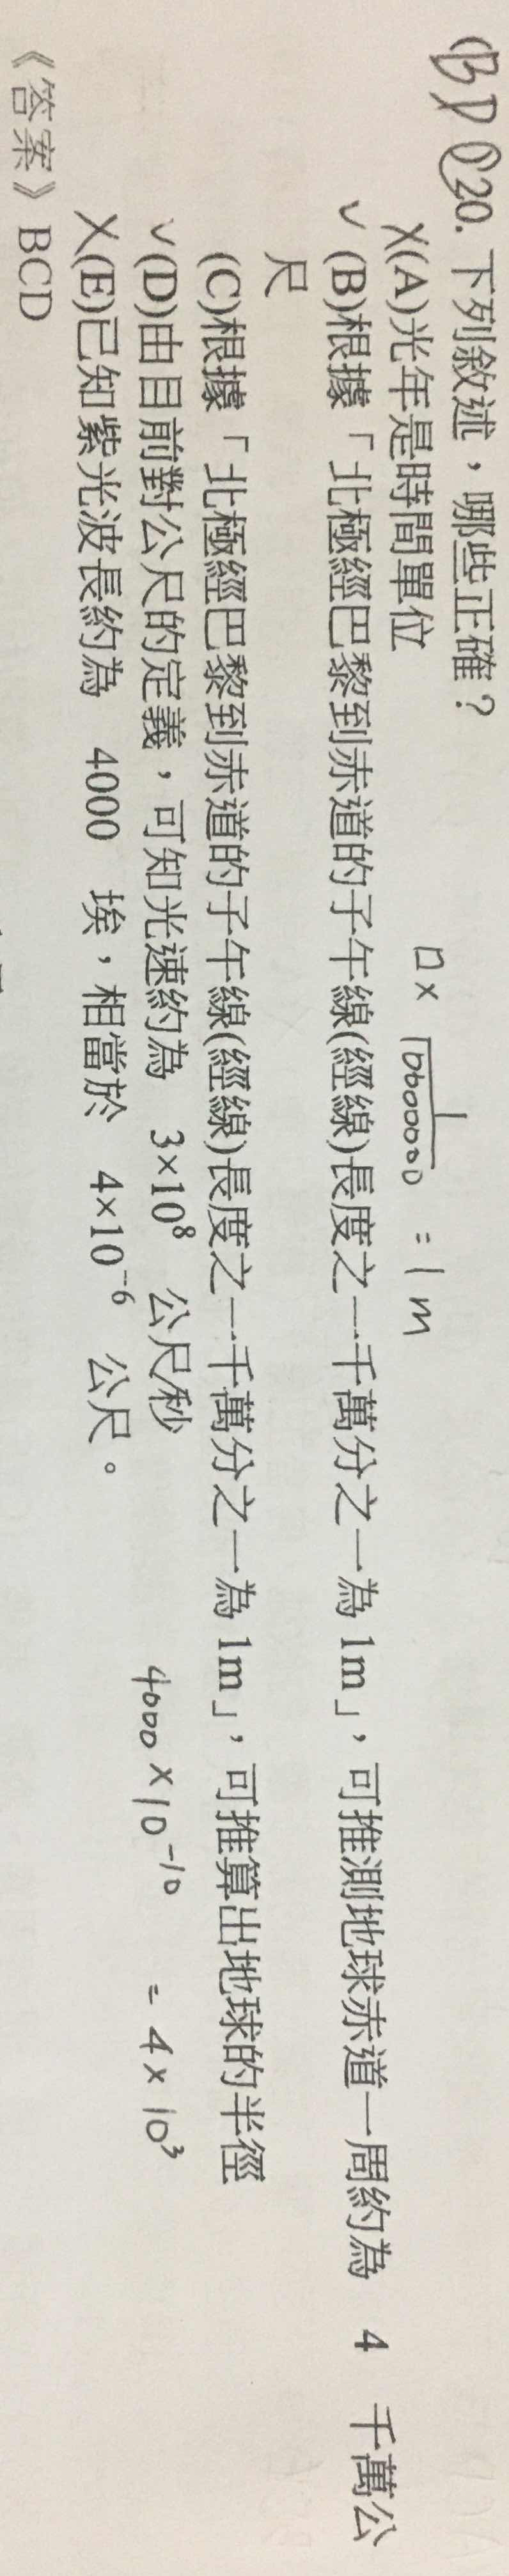 (BD 20.下列敘述，哪些正確？
X(A)光年是時間單位
□× 1/10000000 = 1m
✓(B)根據「北極經巴黎到赤道的子午線(經線)長度之一千萬分之一為1m」，可推測地球赤道一周約為 4 千萬公
尺
(C)根據「北極經巴黎到赤道的子午線(經線)長度之一千萬分之一為1m」，可推算出地球的半徑
✓(D)由目前對公尺的定義，可知光速約為 3×10⁸ 公尺/秒
4000×10⁻¹⁰ = 4×10³
X(E)已知紫光波長約為 4000 埃，相當於 4×10⁻⁶ 公尺。
《答案》BCD